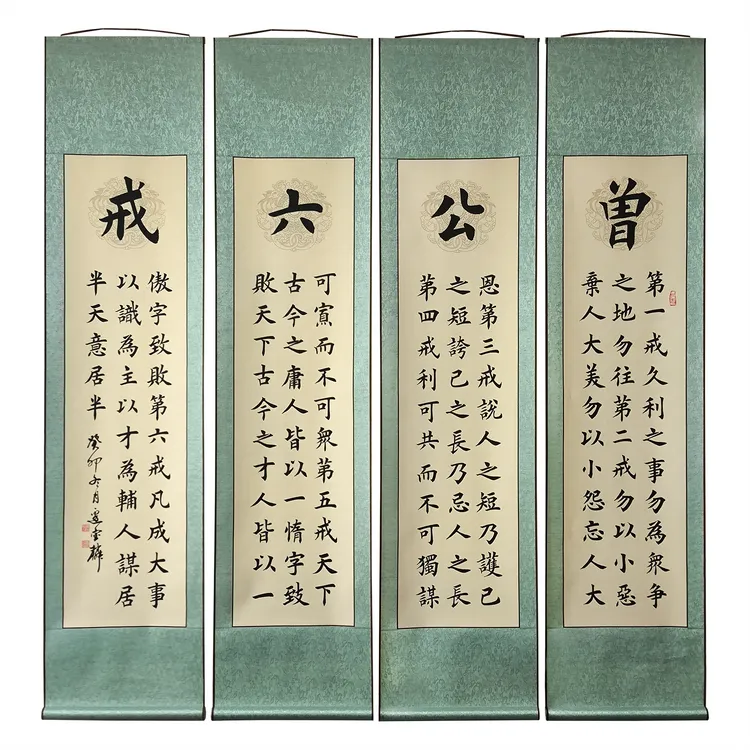 曾
第一戒久利之事勿為衆争
之地勿往第二戒勿以小惡
棄人大美勿以小怨忘人大
公
恩第三戒説人之短乃護己
之短誇己之長乃忌人之長
第四戒利可共而不可獨謀
六
可寡而不可衆第五戒天下
古今之庸人皆以一惰字致
敗天下古今之才人皆以一
戒
傲字致敗第六戒凡成大事
以識為主以才為輔人謀居
半天意居半
癸卯冬月